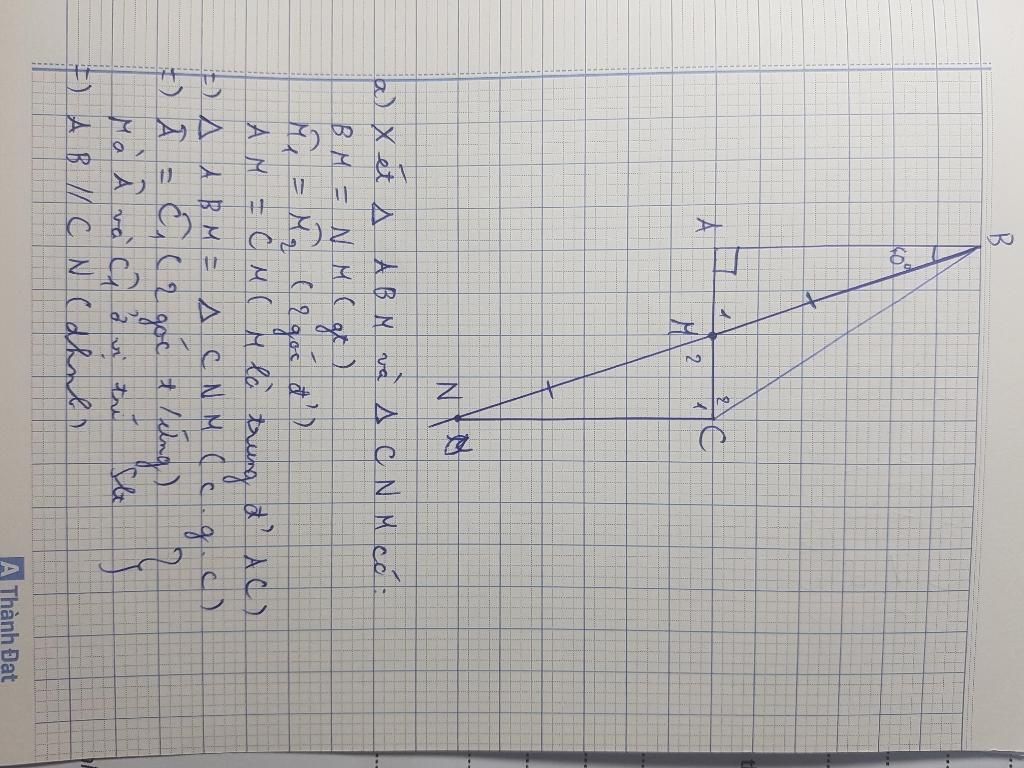 B
60°
A
1
M
2
1
2
C
N
a) Xét Δ ABM và Δ CNM có:
BM = NM (gt)
M̂1 = M̂2 (2 góc đ')
AM = CM (M là trung đ' AC)
=) Δ ABM = Δ CNM (c.g.c)
=) Â = Ĉ1 (2 góc t/ứng)
Mà Â và Ĉ1 ở vị trí slt
=) AB // CN (dhnb)
A Thành Đạt